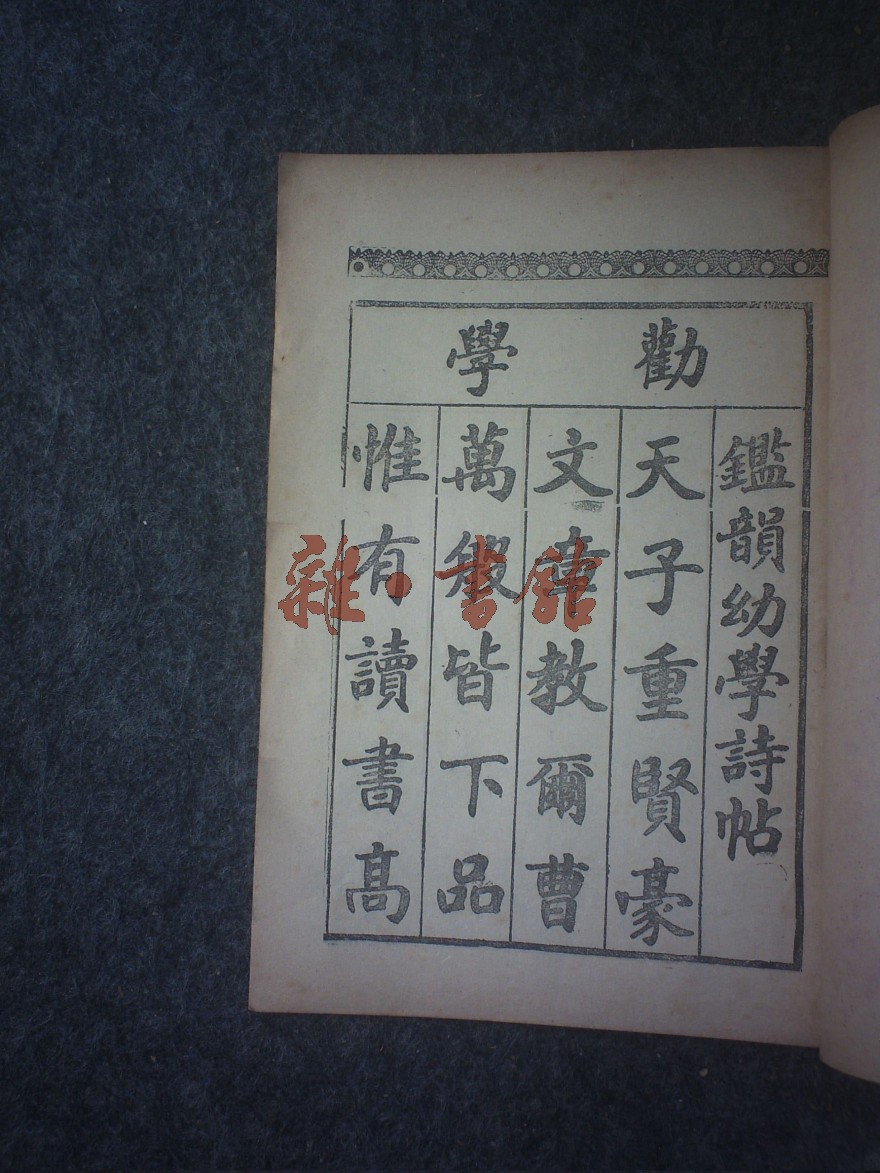 勸學
鑑韻幼學詩帖
天子重賢豪
文章教爾曹
萬般皆下品
惟有讀書高
雜·書館